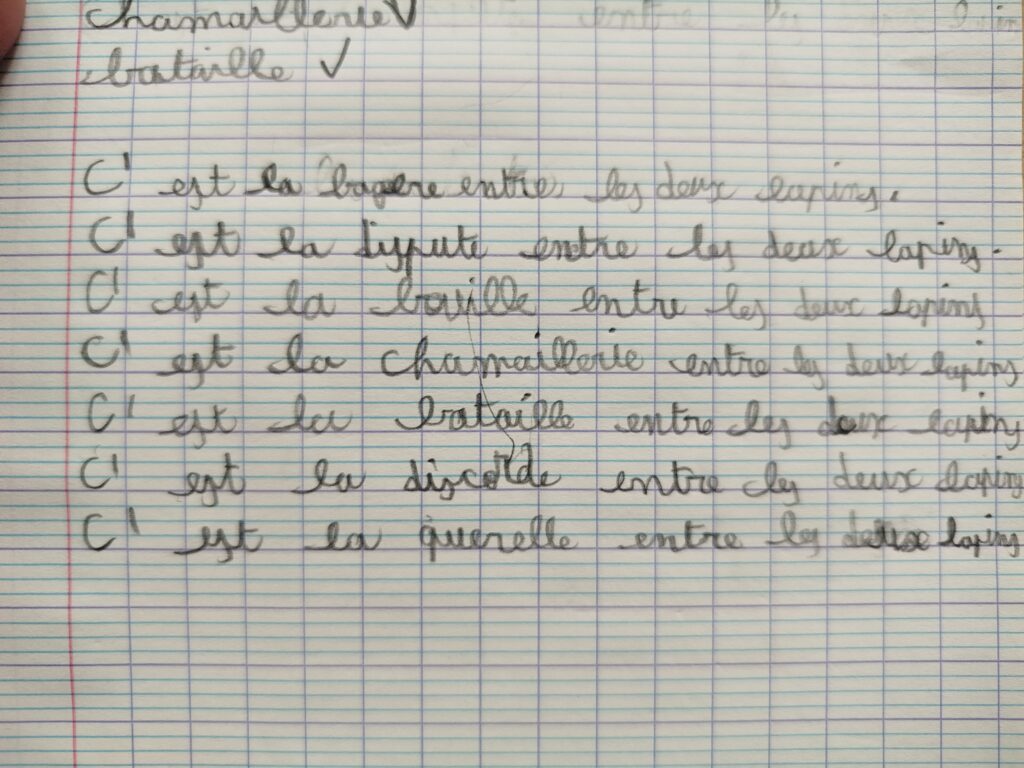 chamaillerie ✓
bataille ✓
C'est la bagere entre les deux lapins.
C'est la dispute entre les deux lapins.
C'est la entre les deux lapins
C'est la chamaillerie entre les deux lapins
C'est la bataille entre les deux lapins
C'est la discorde entre les deux lapins
C'est la querelle entre les deux lapins